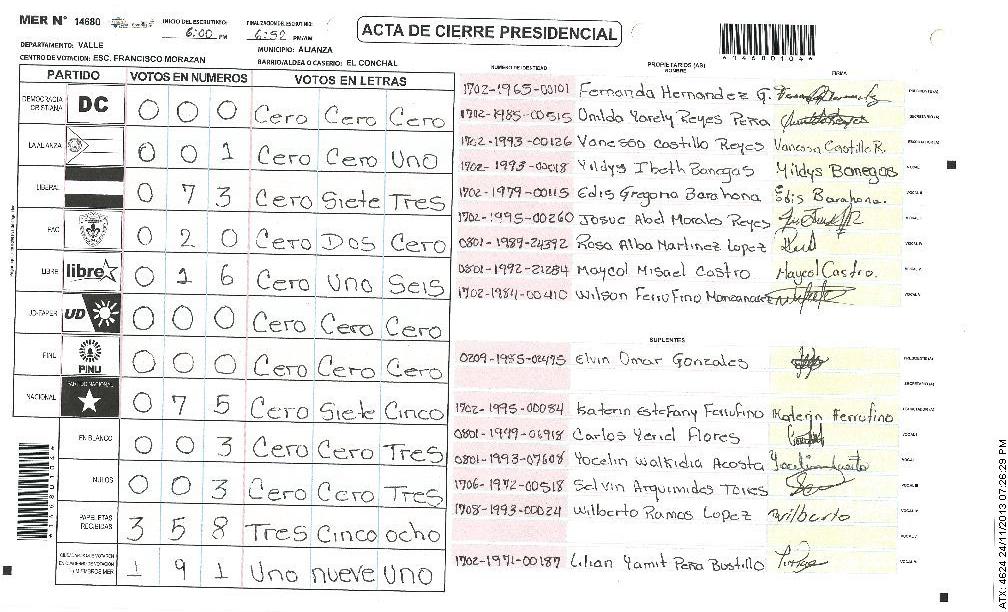 MER N° 14680
INICIO DEL ESCRUTINIO: 6:00 PM
FINALIZACION DEL ESCRUTINIO: 6:52 PM/AM
ACTA DE CIERRE PRESIDENCIAL
DEPARTAMENTO: VALLE
MUNICIPIO: ALIANZA
CENTRO DE VOTACION: ESC. FRANCISCO MORAZAN
BARRIO/ALDEA O CASERIO: EL CONCHAL
PARTIDO VOTOS EN NUMEROS VOTOS EN LETRAS
DEMOCRACIA CRISTIANA DC 0 0 0 Cero Cero Cero
LA ALANZA 0 0 1 Cero Cero Uno
LIBERAL 0 7 3 Cero Siete Tres
PAC 0 2 0 Cero Dos Cero
LIBRE libre 0 1 6 Cero Uno Seis
UD-FAPER UD 0 0 0 Cero Cero Cero
PINU PINU 0 0 0 Cero Cero Cero
NACIONAL PARTIDO NACIONAL 0 7 5 Cero Siete Cinco
EN BLANCO 0 0 3 Cero Cero Tres
NULOS 0 0 3 Cero Cero Tres
PAPELETAS RECIBIDAS 3 5 8 Tres Cinco ocho
1 9 1 Uno nueve Uno
NUMERO DE IDENTIDAD PROPIETARIOS (AS) NOMBRE FIRMA
1702-1965-00101 Fernanda Hernandez G.
1702-1985-00515 Onilda Yarely Reyes Peña
1702-1993-00126 Vanessa Castillo Reyes Vanessa Castillo R.
1702-1993-00018 Yildys Ibeth Banegas Yildys Banegas
1702-1979-00115 Edis Gregoria Barahona Edis Barahona.
1702-1995-00260 Josue Abel Morales Reyes
0801-1989-24392 Rosa Alba Martinez Lopez
0801-1992-21284 Maycol Misael Castro Maycol Castro.
1702-1984-00410 Wilson Ferrufino Manzanares
SUPLENTES
0209-1985-02475 Elvin Omar Gonzales
1702-1995-00084 Katerin Estefany Ferrufino Katerin Ferrufino
0801-1979-06918 Carlos Yeriel Flores
0801-1993-07608 Yocelin Walkidia Acosta
1706-1972-00518 Selvin Arquimides Torres
1708-1993-00024 Wilberto Ramos Lopez Wilberto
1702-1971-00187 Lilian Yamit Peña Bustillo
*14680104*
ATX: 4624 24/11/2013 07:26:29 PM